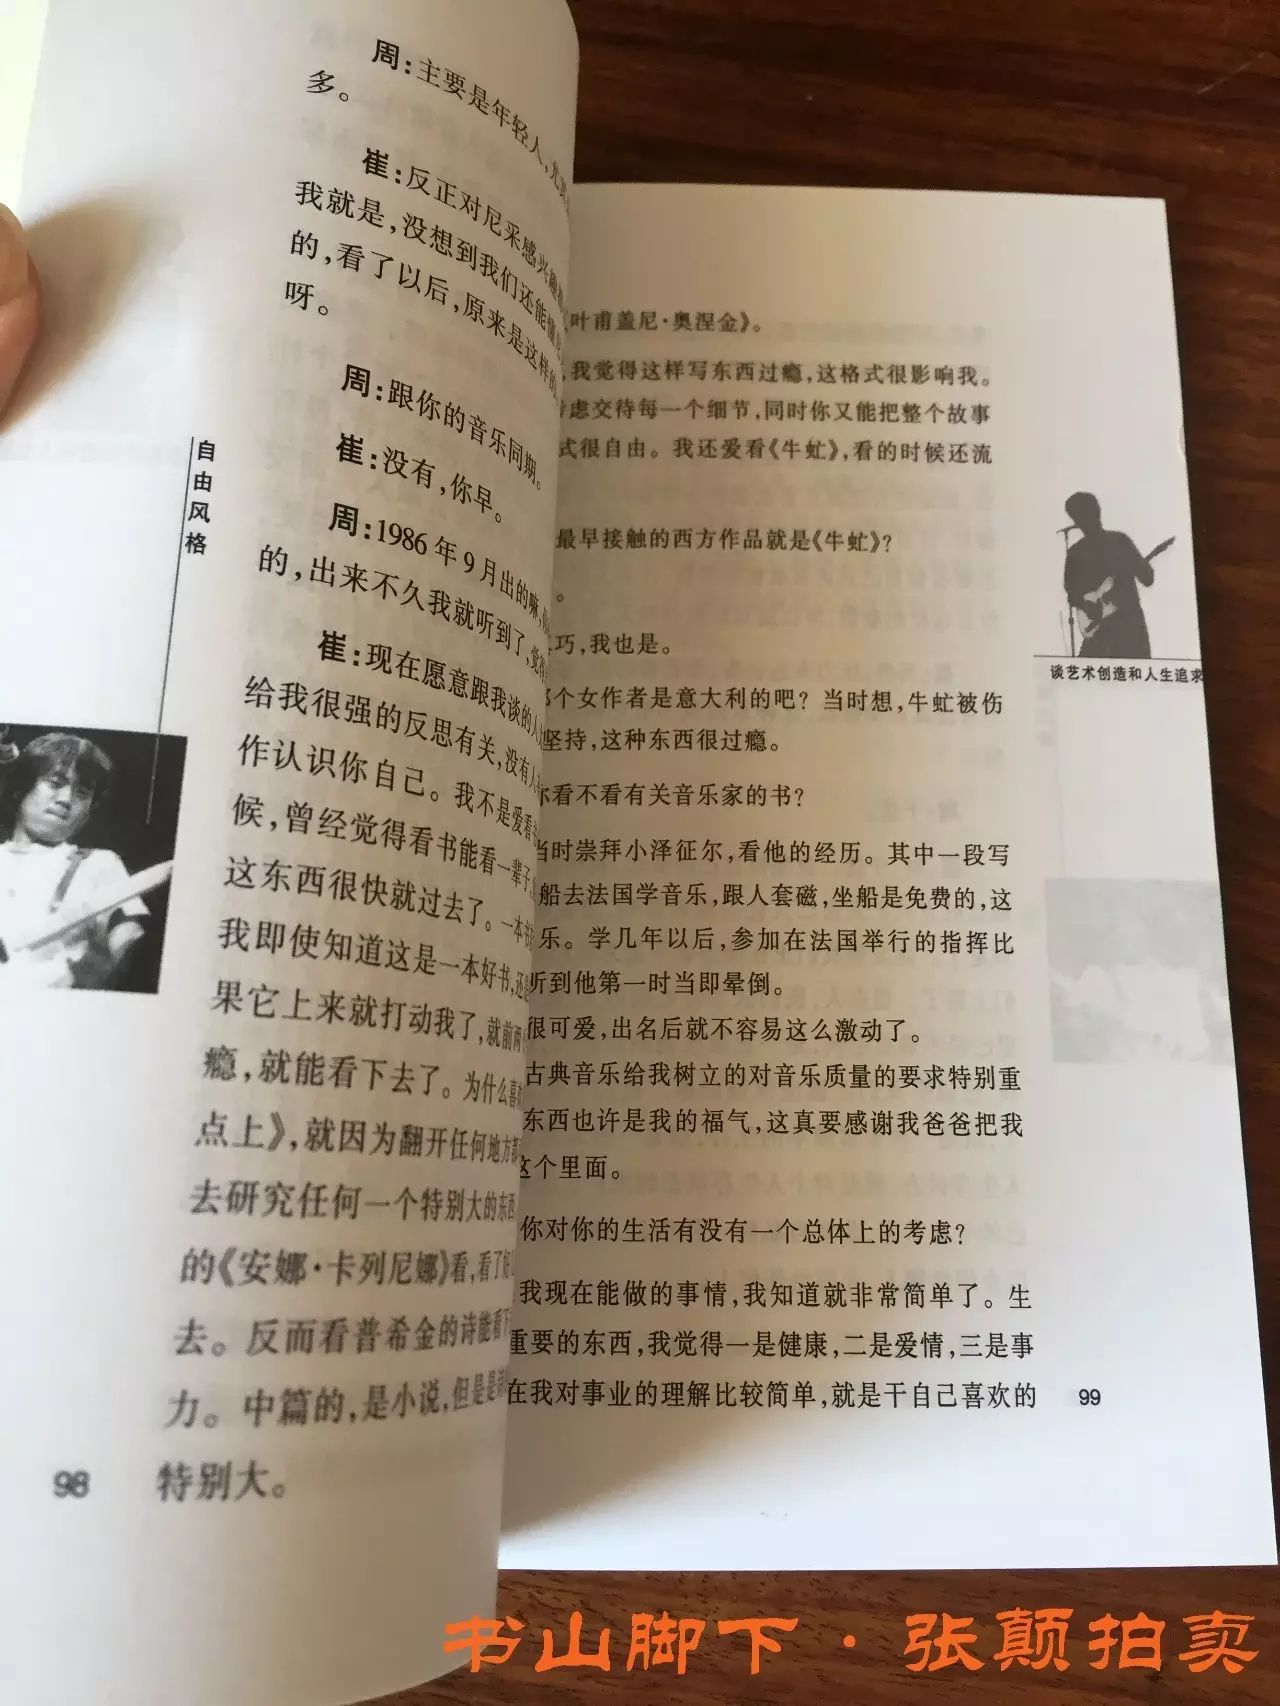 周：主要是年轻人，尤
多。
崔：反正对尼采感兴趣
我就是，没想到我们还能懂
的，看了以后，原来是这样的
呀。
周：跟你的音乐同期。
崔：没有，你早。
周：1986年9月出的嘛，
的，出来不久我就听到了，觉得
崔：现在愿意跟我谈的人
给我很强的反思有关，没有人
作认识你自己。我不是爱看
候，曾经觉得看书能看一辈子，
这东西很快就过去了。一本书
我即使知道这是一本好书，还
果它上来就打动我了，就前两
瘾，就能看下去了。为什么喜
点上》，就因为翻开任何地方都
去研究任何一个特别大的东西
的《安娜·卡列尼娜》看，看了
去。反而看普希金的诗能看下
力。中篇的，是小说，但是是
特别大。
98
自由风格
叶甫盖尼·奥涅金》。
，我觉得这样写东西过瘾，这格式很影响我。
虑交待每一个细节，同时你又能把整个故事
式很自由。我还爱看《牛虻》，看的时候还流
最早接触的西方作品就是《牛虻》？
。
巧，我也是。
那个女作者是意大利的吧？当时想，牛虻被伤
坚持，这种东西很过瘾。
你看不看有关音乐家的书？
当时崇拜小泽征尔，看他的经历。其中一段写
船去法国学音乐，跟人套磁，坐船是免费的，这
乐。学几年以后，参加在法国举行的指挥比
听到他第一时当即晕倒。
很可爱，出名后就不容易这么激动了。
古典音乐给我树立的对音乐质量的要求特别重
东西也许是我的福气，这真要感谢我爸爸把我
这个里面。
你对你的生活有没有一个总体上的考虑？
我现在能做的事情，我知道就非常简单了。生
重要的东西，我觉得一是健康，二是爱情，三是事
在我对事业的理解比较简单，就是干自己喜欢的
99
谈艺术创造和人生追求
书山脚下·张颠拍卖